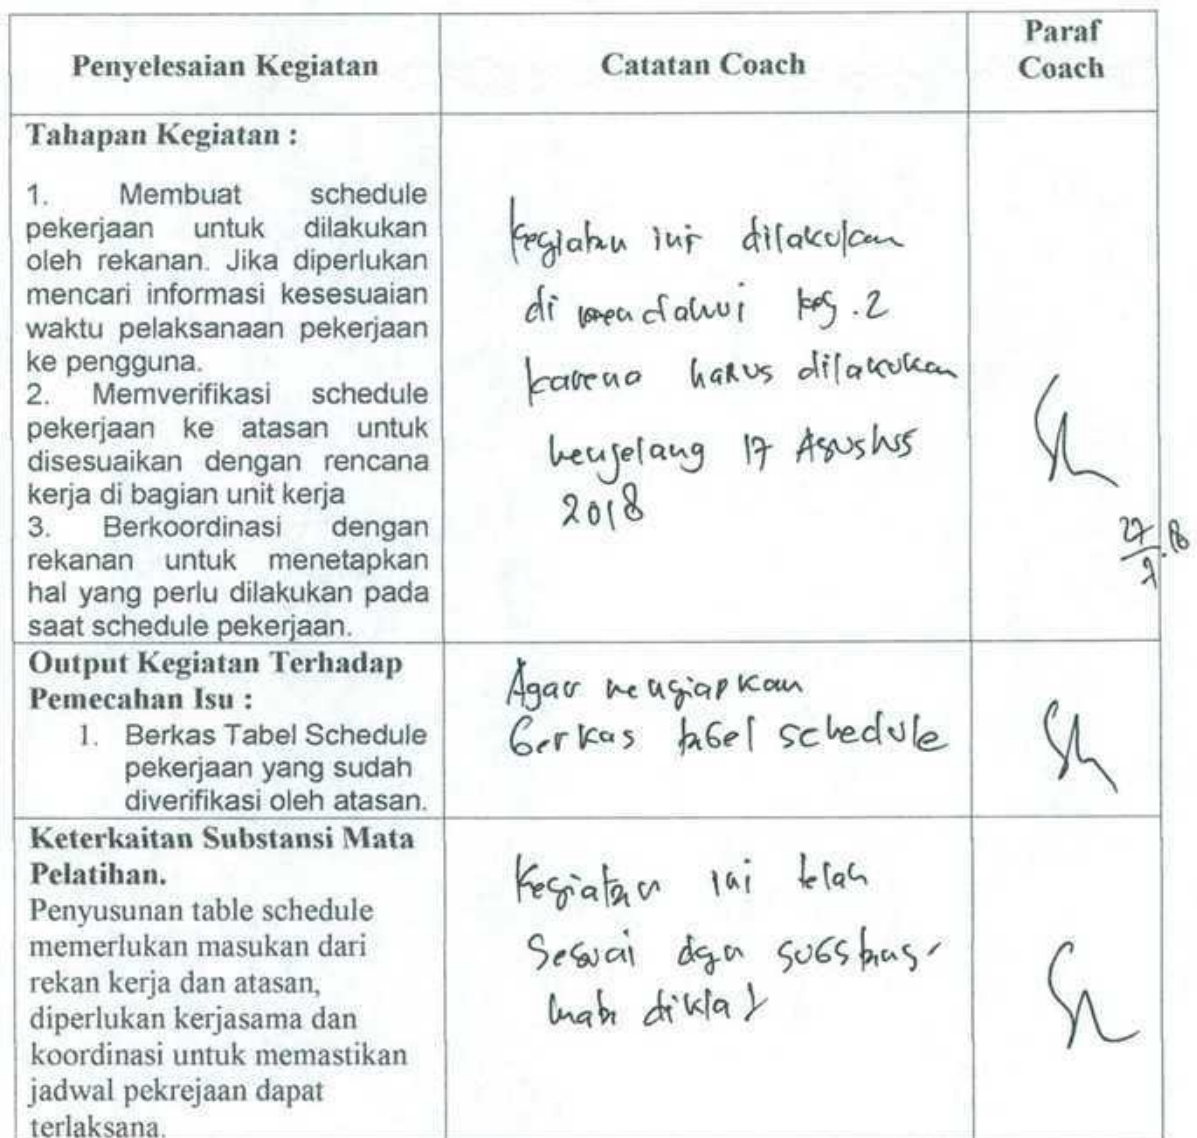 Penyelesaian Kegiatan
Catatan Coach
Paraf
Coach
Tahapan Kegiatan :
1. Membuat schedule
pekerjaan untuk dilakukan
oleh rekanan. Jika diperlukan
mencari informasi kesesuaian
waktu pelaksanaan pekerjaan
ke pengguna.
2. Memverifikasi schedule
pekerjaan ke atasan untuk
disesuaikan dengan rencana
kerja di bagian unit kerja
3. Berkoordinasi dengan
rekanan untuk menetapkan
hal yang perlu dilakukan pada
saat schedule pekerjaan.
Kegiatan ini dilakukan
di mendahui keg. 2
karena harus dilakukan
menjelang 17 Agustus
2018
Output Kegiatan Terhadap
Pemecahan Isu :
1. Berkas Tabel Schedule
pekerjaan yang sudah
diverifikasi oleh atasan.
Agar mengiapkan
berkas tabel schedule
Keterkaitan Substansi Mata
Pelatihan.
Penyusunan table schedule
memerlukan masukan dari
rekan kerja dan atasan,
diperlukan kerjasama dan
koordinasi untuk memastikan
jadwal pekrejaan dapat
terlaksana.
Kegiatan ini telah
Sesuai dgn substansi
mata diklat